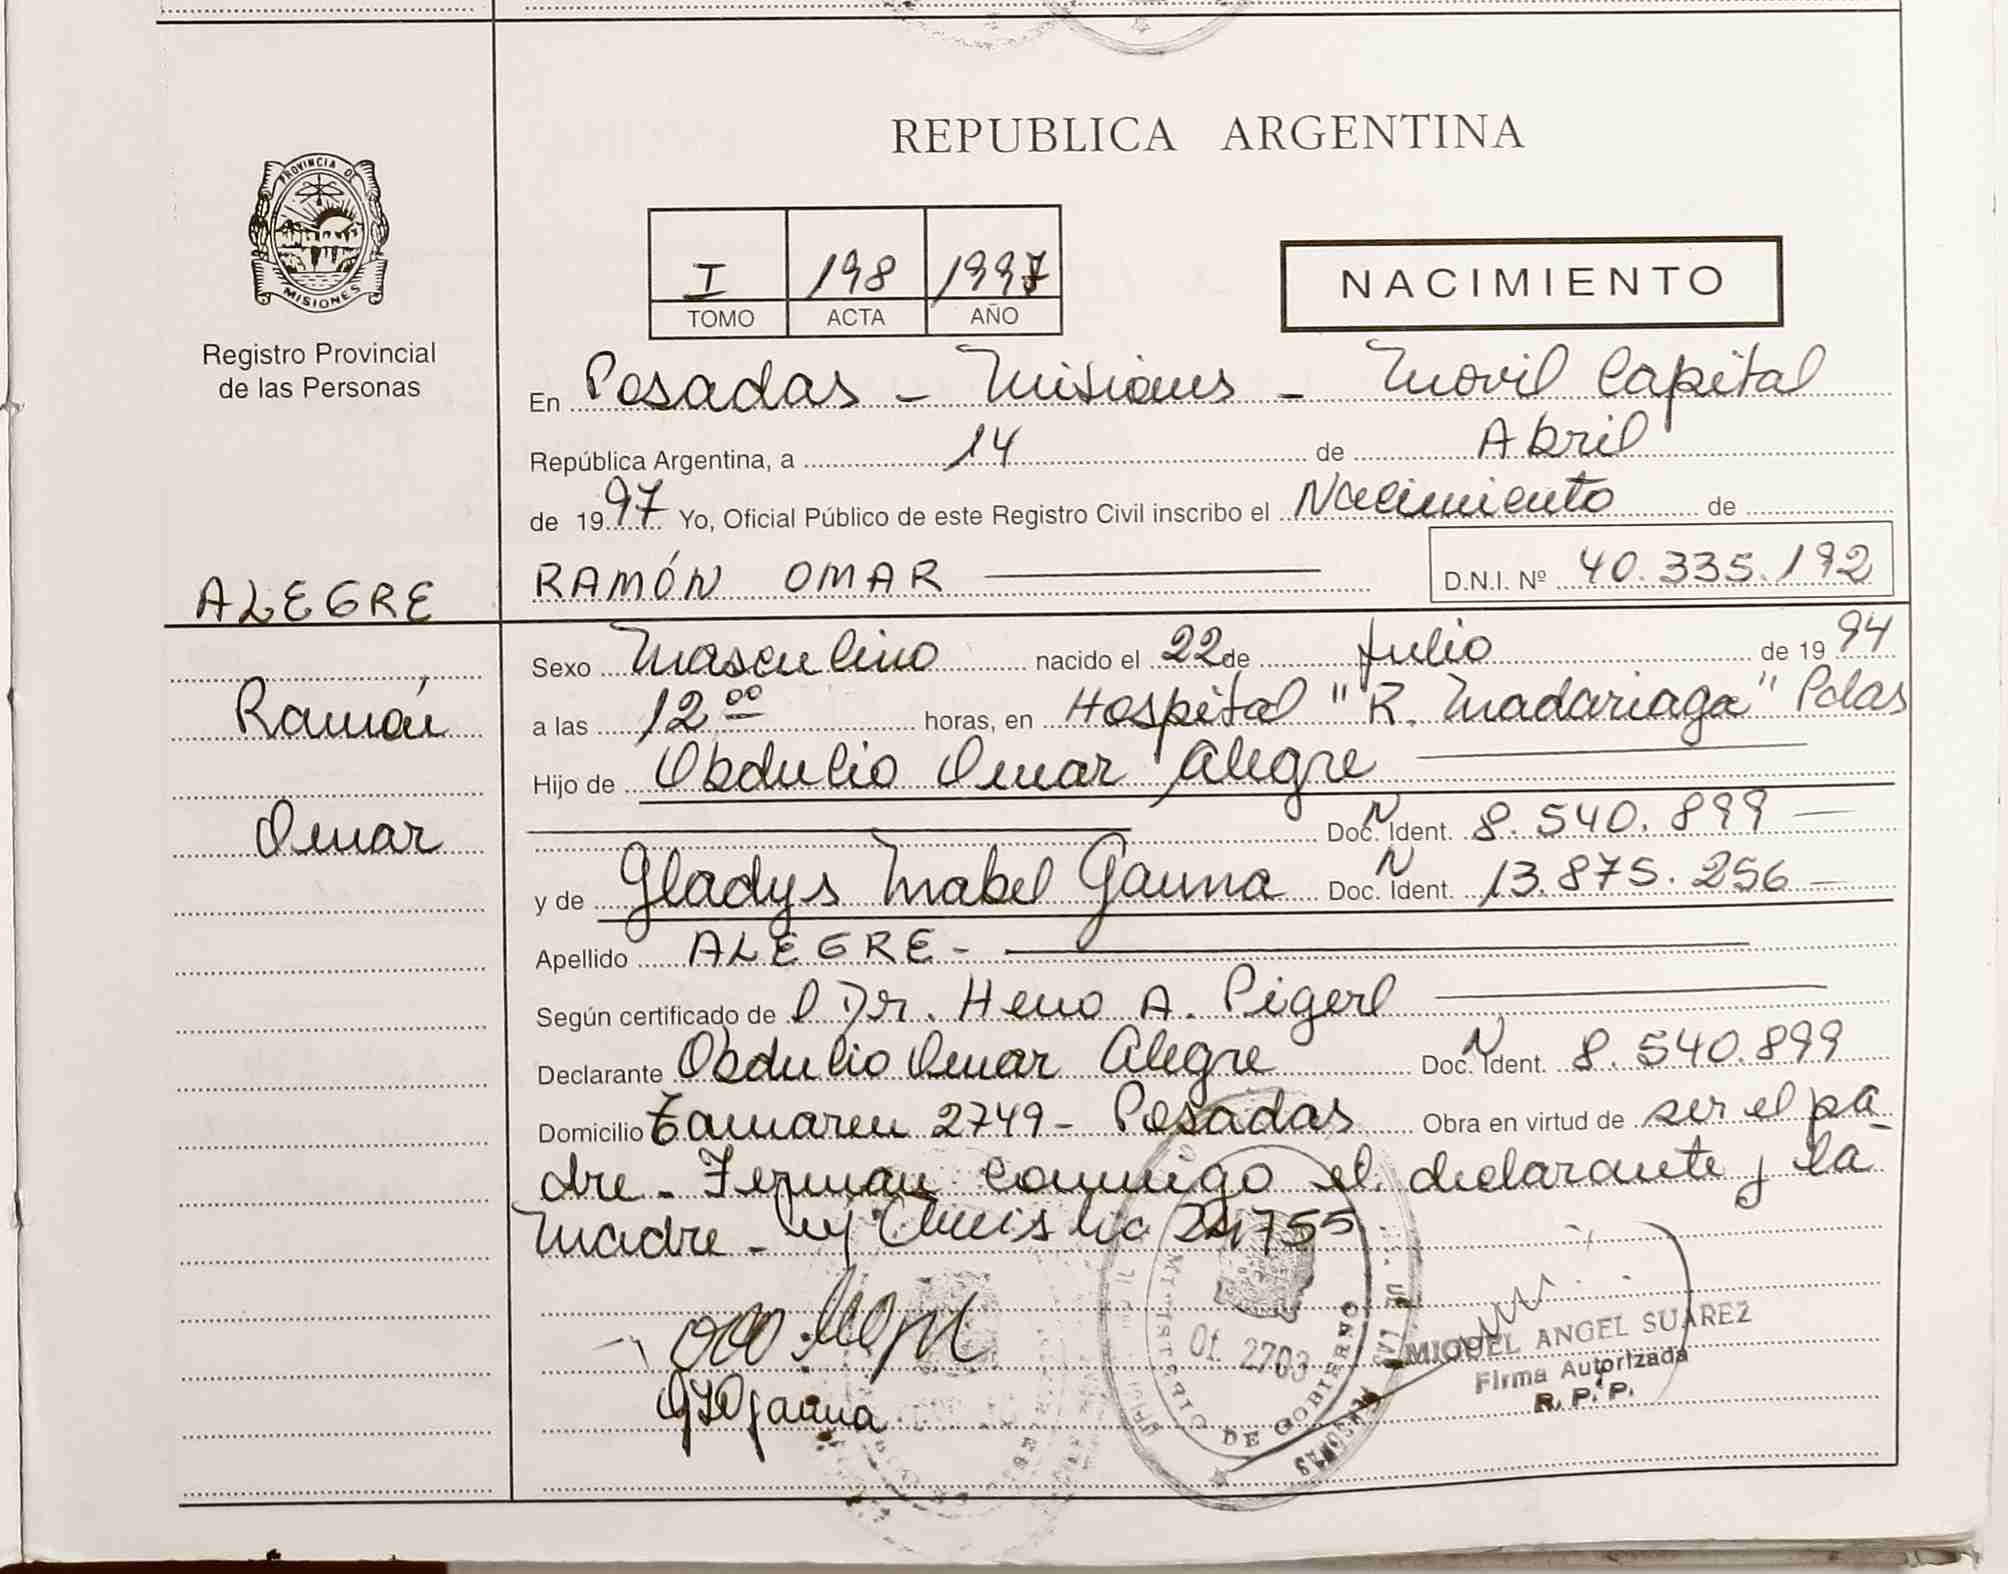 REPUBLICA ARGENTINA
PROVINCIA DE
MISIONES
Registro Provincial
de las Personas
I 198 1997
TOMO ACTA AÑO
NACIMIENTO
En Posadas - Misiones - Movil Capital
República Argentina, a 14 de Abril
de 1997 Yo, Oficial Público de este Registro Civil inscribo el Nacimiento de
ALEGRE
RAMÓN OMAR D.N.I. Nº 40.335.192
Sexo Masculino nacido el 22 de Julio de 1994
Ramón
a las 12 00 horas, en Hospital "R. Madariaga" Pdas
Hijo de Obdulio Omar Alegre
Omar
Doc. N Ident. 8.540.899
y de Gladys Mabel Gauna Doc. N Ident. 13.875.256
Apellido ALEGRE -
Según certificado de l Dr. Heno A. Pigerl
Declarante Obdulio Omar Alegre Doc. N Ident. 8.540.899
Domicilio 2749 - Posadas Obra en virtud de ser el pa
dre - Firman conmigo el declarante y la
Madre - 24755
01 2703
MINISTERIO DE GOBIERNO
MIGUEL ANGEL SUAREZ
Firma Autorizada
R. P. P.